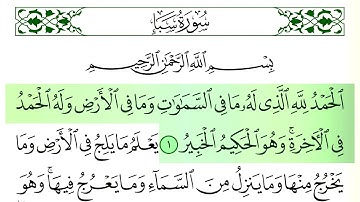 سُورَةُ سَبَإٍ
بِسْمِ ٱللَّهِ ٱلرَّحْمَٰنِ ٱلرَّحِيمِ
ٱلْحَمْدُ لِلَّهِ ٱلَّذِى لَهُۥ مَا فِى ٱلسَّمَٰوَٰتِ وَمَا فِى ٱلْأَرْضِ وَلَهُ ٱلْحَمْدُ
فِى ٱلْأَخِرَةِ ۚ وَهُوَ ٱلْحَكِيمُ ٱلْخَبِيرُ ١ يَعْلَمُ مَا يَلِجُ فِى ٱلْأَرْضِ وَمَا
يَخْرُجُ مِنْهَا وَمَا يَنزِلُ مِنَ ٱلسَّمَآءِ وَمَا يَعْرُجُ فِيهَا ۚ وَهُوَ